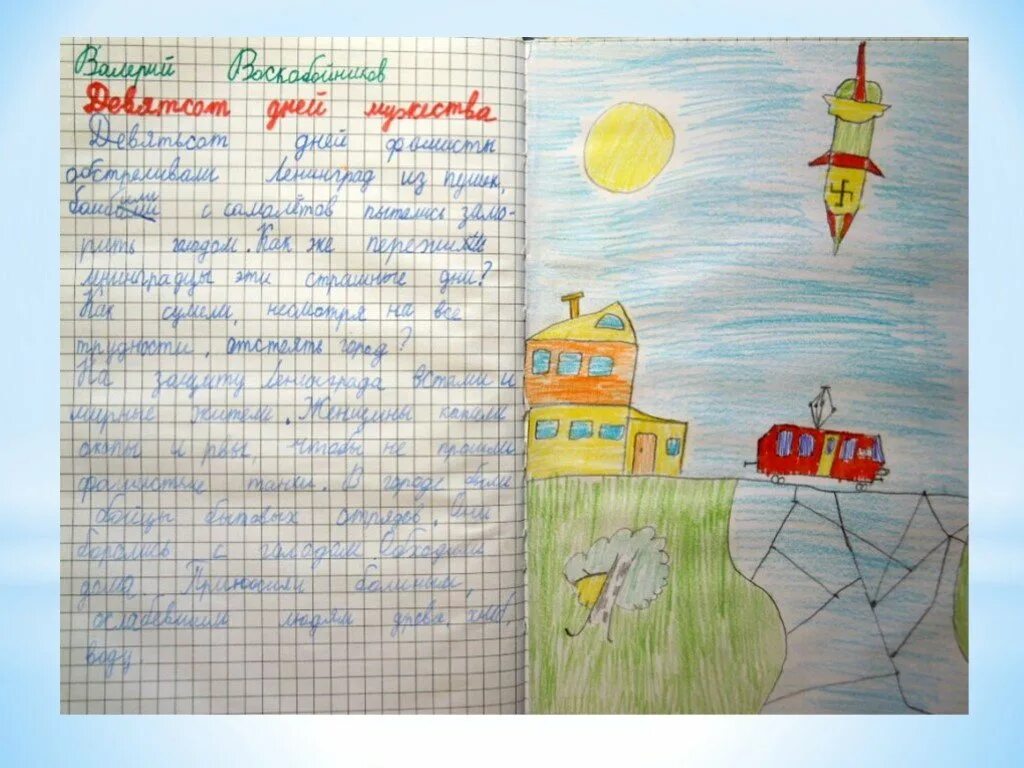 Валерий Воскобойников
Девятсот дней мужества
Девятьсот дней фашисты
обстреливали Ленинград из пушек,
с самолётов пытались замо-
рить голодом. Как же пережили
ленинградцы эти страшные дни?
Как сумели, несмотря на все
трудности, отстоять город?
На защиту Ленинграда встали и
мирные жители. Женщины капали
окопы и рвы, чтобы не прошли
фашистые танки. В городе были
бойцы бытовых отрядов. Они
боролись с голодом. Обходили
дома. Приносили больным,
ослабевшим людям дрова, хлеб,
воду.